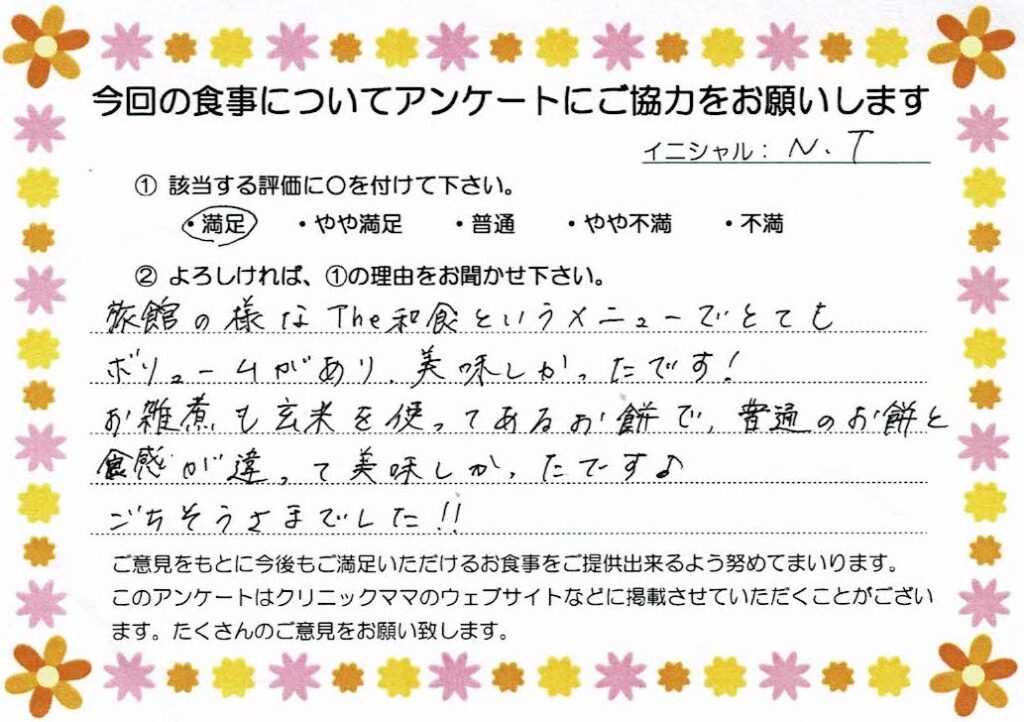 今回の食事についてアンケートにご協力をお願いします
イニシャル： N.T
① 該当する評価に○を付けて下さい。
・満足 ・やや満足 ・普通 ・やや不満 ・不満
② よろしければ、①の理由をお聞かせ下さい。
旅館の様なThe和食というメニューでとても
ボリュームがあり、美味しかったです！
お雑煮も玄米を使ってあるお餅で、普通のお餅と
食感が違って美味しかったです♪
ごちそうさまでした!!
ご意見をもとに今後もご満足いただけるお食事をご提供出来るよう努めてまいります。
このアンケートはクリニックママのウェブサイトなどに掲載させていただくことがござい
ます。たくさんのご意見をお願い致します。